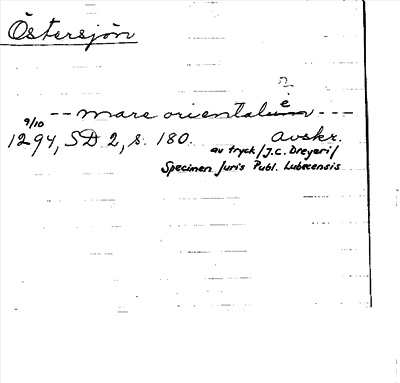 Östersjön
-- mare orientalem ---
9/10
1294, SD 2, s. 180. Avskr.
av tryck /J.C. Dreyeri/
Specimen Juris Publ. Lubecensis